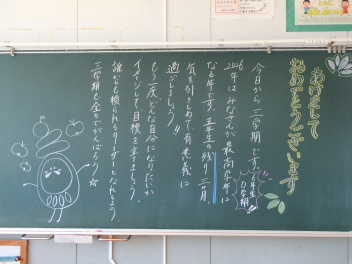 あけまして
おめでとうございます
今日から三学期です。
6年生
0学期!!
2026年はみなさんが最高学年に
なる年です。五年生の残り三ヶ月、
気を引きしめて有意義に
過ごしましょう!
もう一度どんな自分になりたいか
イメージして目標を立てましょう。
誰からも頼られるリーダーとなれるよう、
三学期も全力でがんばろう☆